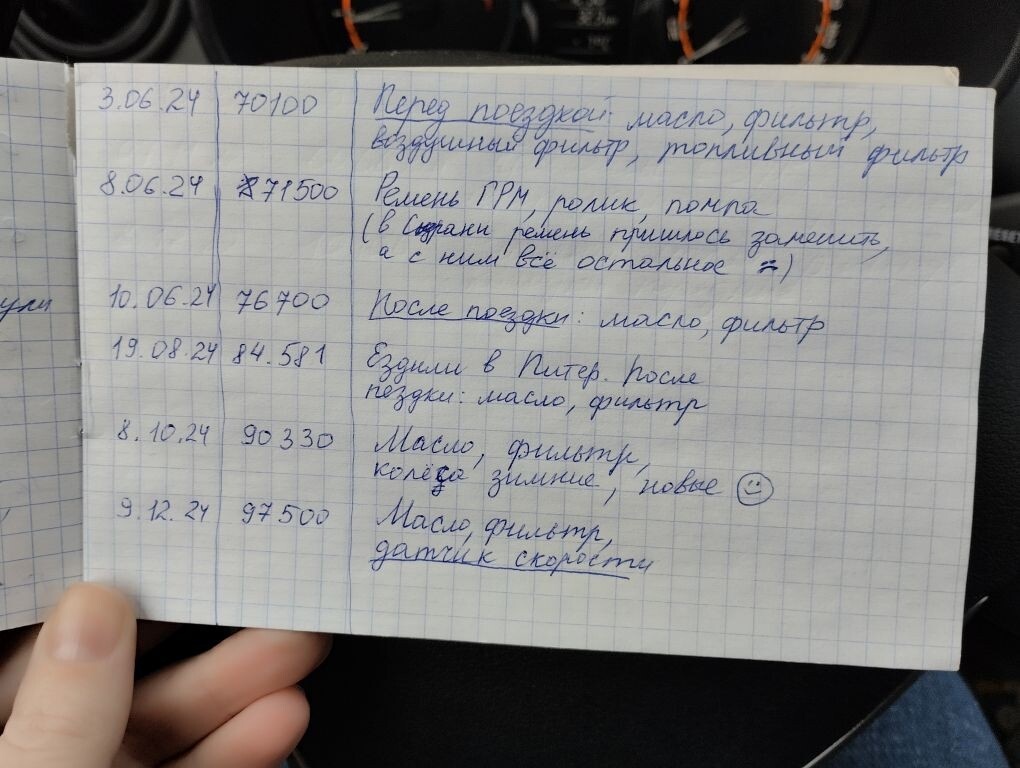 3.06.24 70100 Перед поездкой: масло, фильтр,
воздушный фильтр, топливный фильтр
8.06.24 71500 Ремень ГРМ, ролик, помпа
(в Сызрани ремень пришлось заменить,
а с ним всё остальное =)
10.06.24 76700 После поездки: масло, фильтр
19.08.24 84.581 Ездили в Питер. После
пездки: масло, фильтр
8.10.24 90330 Масло, фильтр,
колёса зимние, новые ☺
9.12.24 97500 Масло, фильтр,
датчик скорости